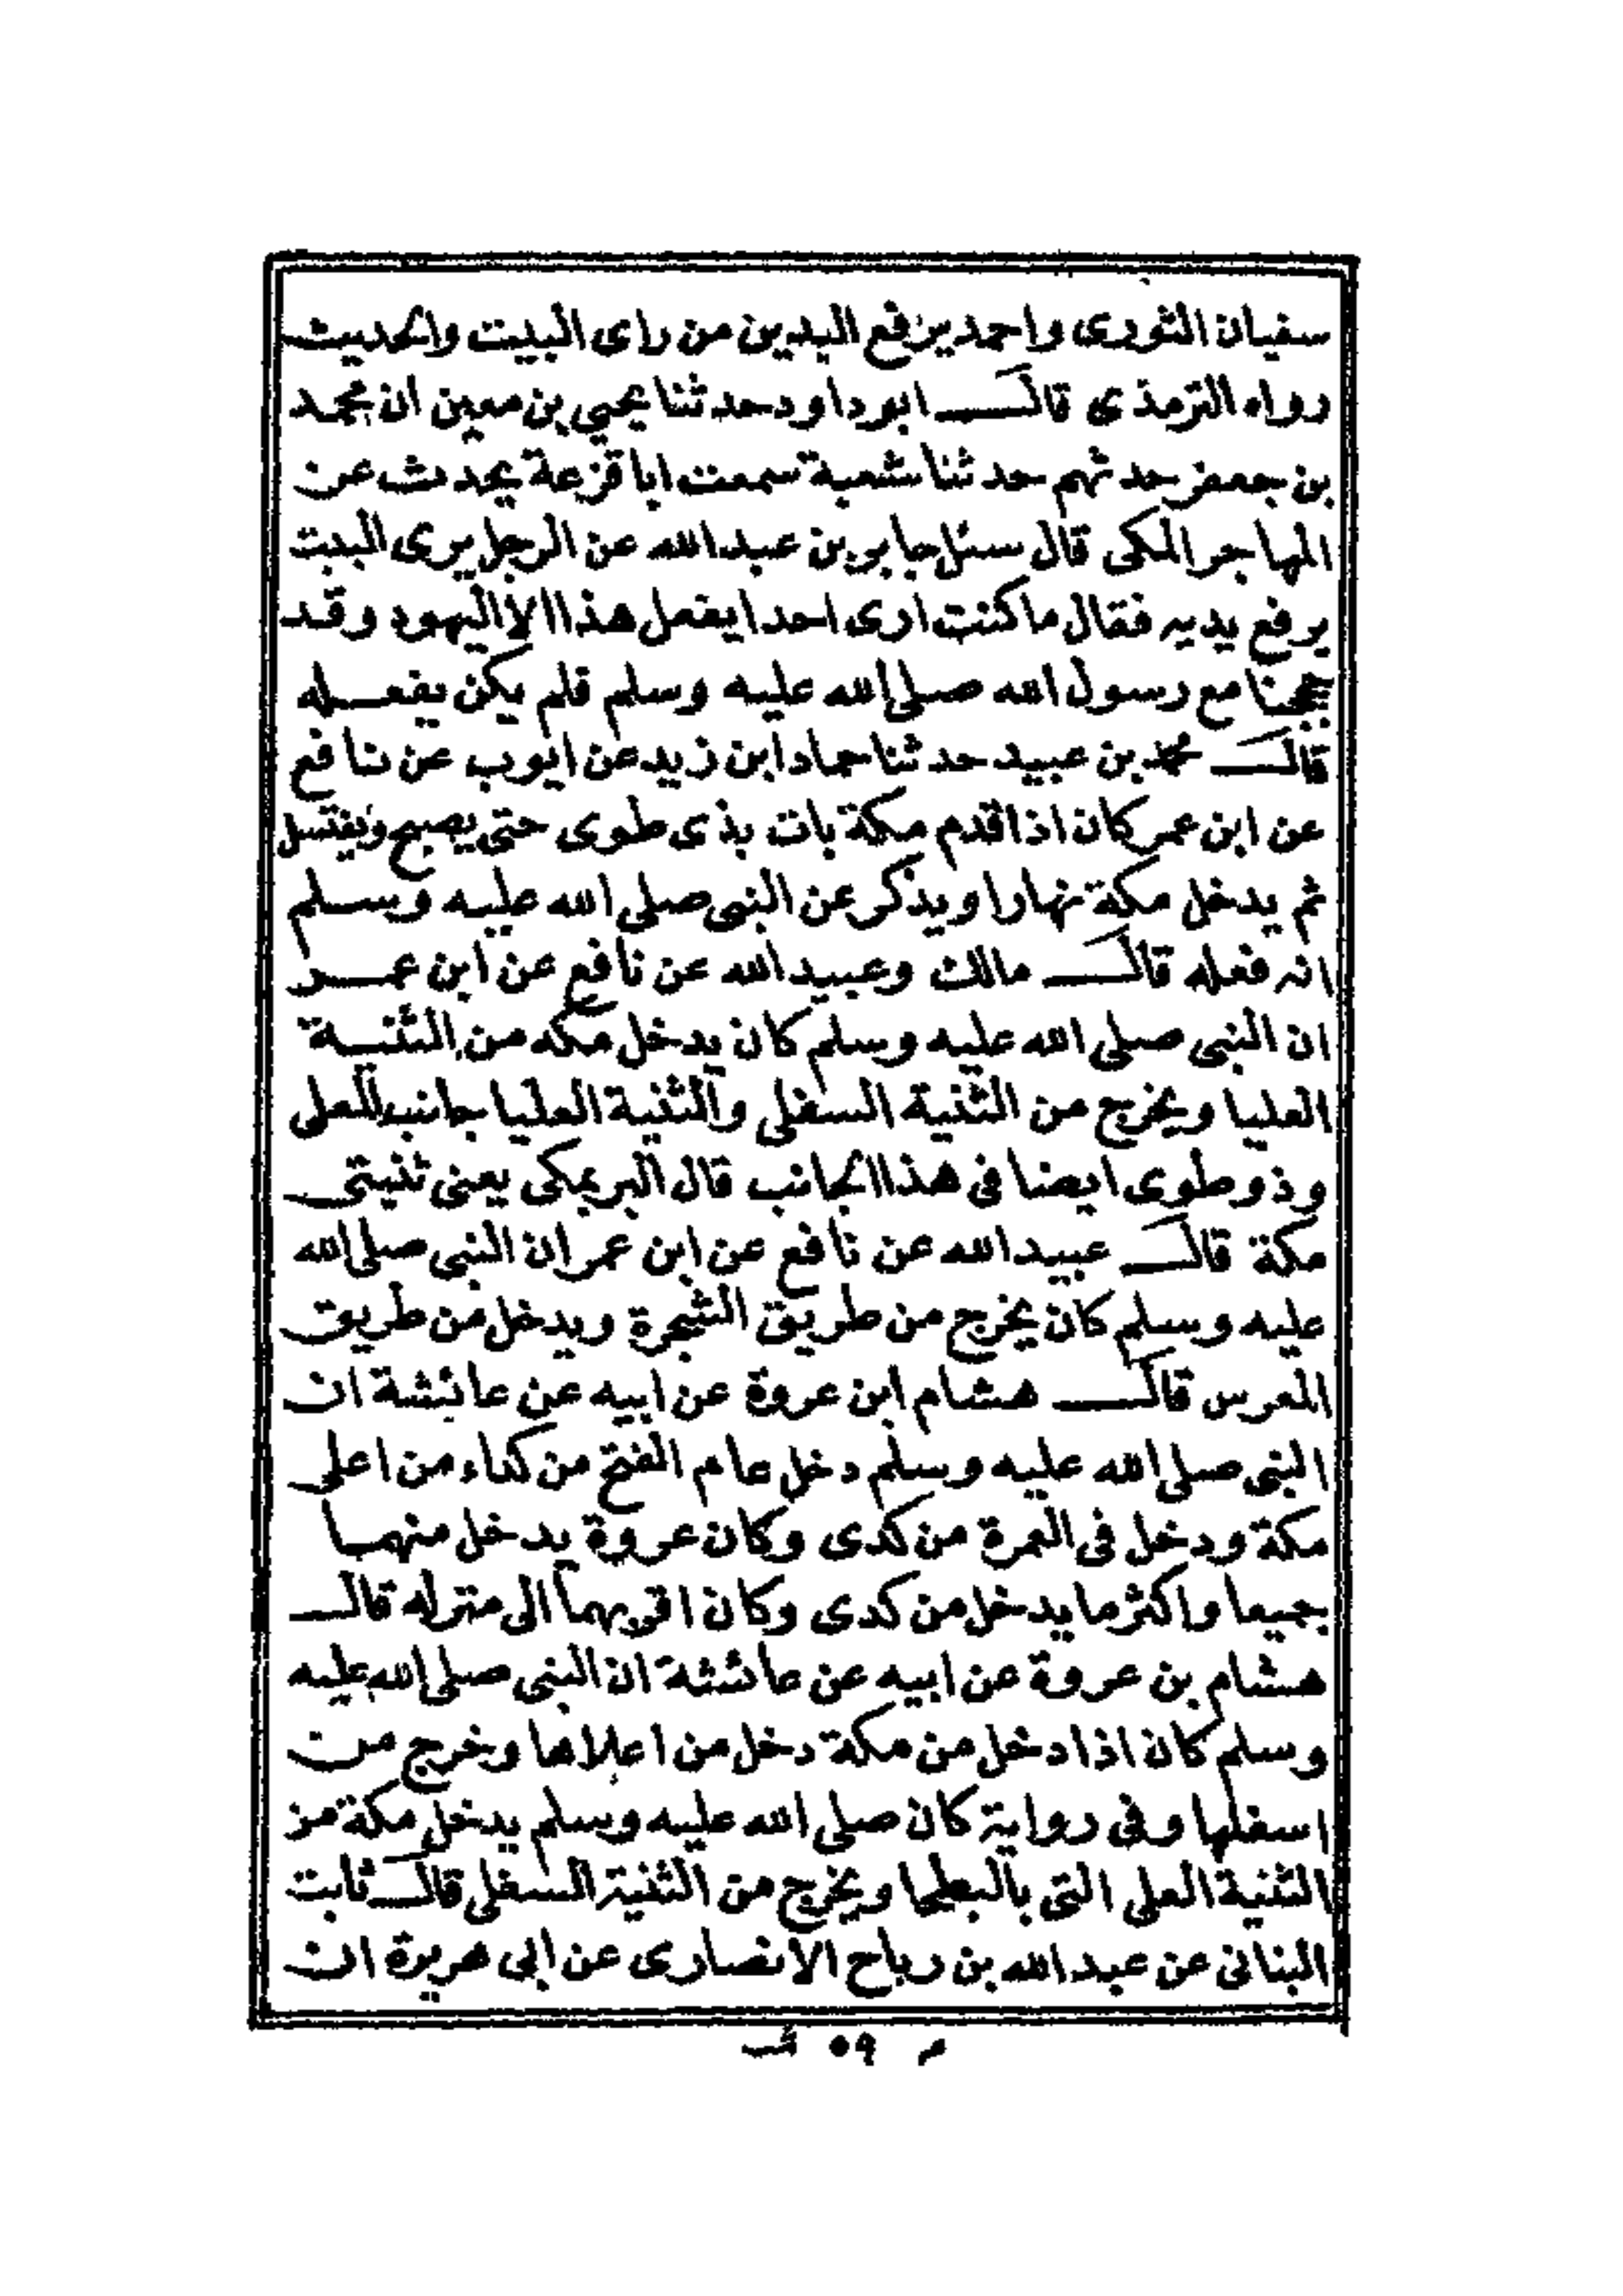 سفيان الثورى واحمد يرفع اليدين من راى البيت والحديث
رواه الترمذى قال ابو داود حدثنا يحيى بن معين ان محمد
بن جعفر حدثهم حدثنا شعبة سمعت ابا قزعة يحدث عن
المهاجر المكى قال سئل جابر بن عبد الله عن الرجل يرى البيت
يرفع يديه فقال ما كنت ارى احدا يفعل هذا الا اليهود وقد
حججنا مع رسول الله صلى الله عليه وسلم فلم يكن يفعله
قال محمد بن عبيد حدثنا حماد ابن زيد عن ايوب عن نافع
عن ابن عمر كان اذا قدم مكة بات بذى طوى حتى يصبح ويغتسل
ثم يدخل مكة نهارا ويذكر عن النبى صلى الله عليه وسلم
انه فعله قال مالك وعبيد الله عن نافع عن ابن عمر
ان النبى صلى الله عليه وسلم كان يدخل مكه من الثنية
العليا ويخرج من الثنية السفلى والثنية العليا جانب المعلى
وذو طوى ايضا فى هذا الجانب قال البرمكى يعنى ثنيتى
مكة قال عبيد الله عن نافع عن ابن عمر ان النبى صلى الله
عليه وسلم كان يخرج من طريق الشجرة ويدخل من طريق
المعرس قال هشام ابن عروة عن ابيه عن عائشة ان
النبى صلى الله عليه وسلم دخل عام الفتح من كداء من اعلى
مكة ودخل فى العمرة من كدى وكان عروة يدخل منهما
جميعا واكثر ما يدخل من كدى وكان اقربهما الى منزله قال
هشام بن عروة عن ابيه عن عائشة ان النبى صلى الله عليه
وسلم كان اذا دخل من مكة دخل من اعلاها وخرج من
اسفلها وفى رواية كان صلى الله عليه وسلم يدخل مكة من
الثنية العلى التى بالبطحا ويخرج من الثنية السفلى قال ثابت
البنانى عن عبد الله بن رباح الانصارى عن ابى هريرة ان
٥٩